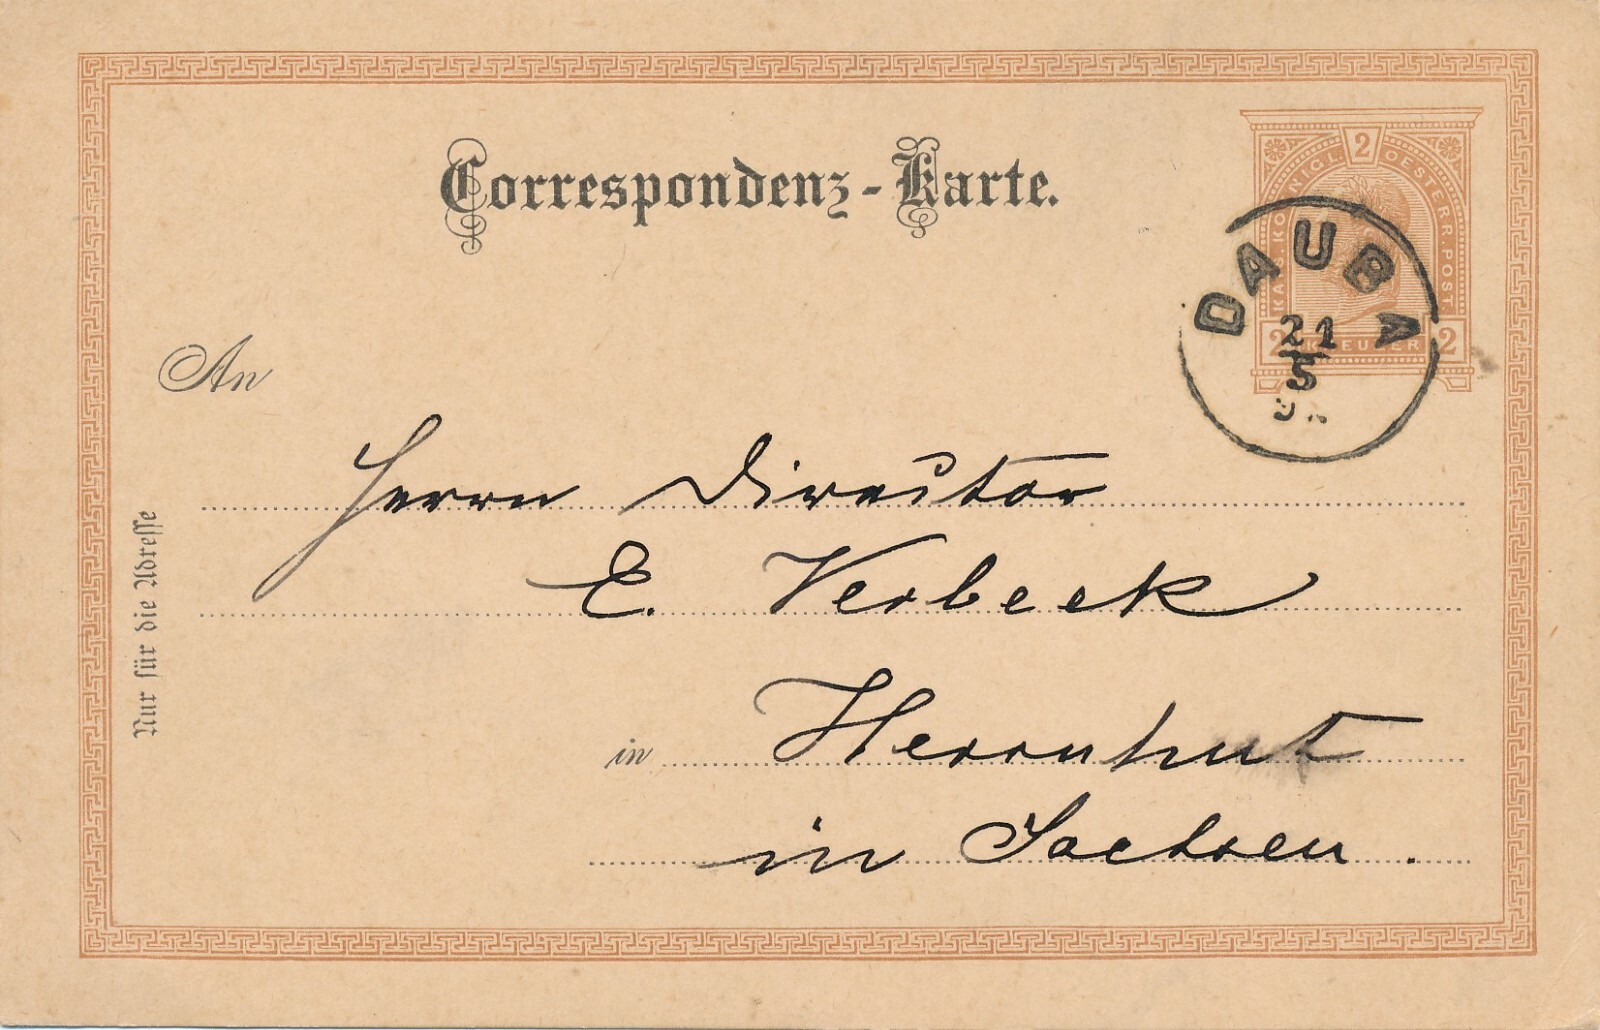 Correspondenz-Karte.
2
KAIS. KÖNIGL. OESTERR. POST
DAUBA
21
5
2 KREUZER 2
An
Herrn Director
E. Verbeek
in Herrnhut
in Sachsen.
Nur für die Adresse